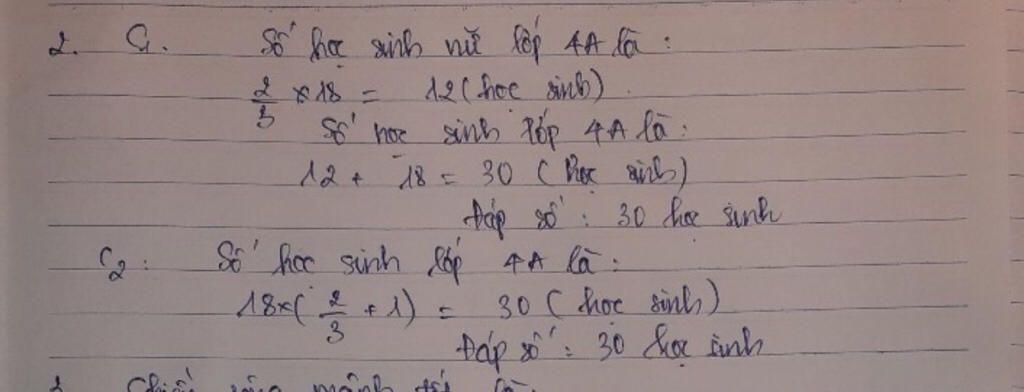 2. C1. Số học sinh nữ lớp 4A là :
2/3 × 18 = 12 (học sinh)
Số học sinh lớp 4A là :
12 + 18 = 30 (học sinh)
Đáp số : 30 học sinh
C2 : Số học sinh lớp 4A là :
18×( 2/3 + 1) = 30 ( học sinh)
Đáp số : 30 học sinh